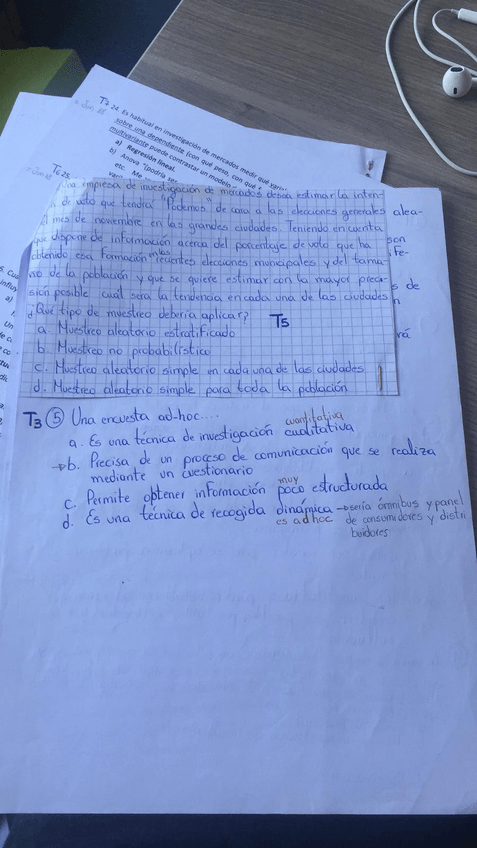 T7 24. Es habitual en investigación de mercados medir qué
sobre una dependiente (con qué peso, con qué
multivariante puede contrastar un modelo
a) Regresión lineal.
b) Anova (podría ser
etc. Me
T6 25.
Una empresa de investigación de mercados desea estimar la inten-
de voto que tendrá "Podemos" de cara a las elecciones generales
mes de noviembre en las grandes ciudades. Teniendo en cuenta
que dispone de información acerca del porcentaje de voto que ha
obtenido esa formación en las recientes elecciones municipales y del tama-
ño de la población y que se quiere estimar con la mayor preci-
sión posible cuál será la tendencia en cada una de las ciudades
¿Qué tipo de muestreo debería aplicar? T5
a. Muestreo aleatorio estratificado
b. Muestreo no probabilístico
c. Muestreo aleatorio simple en cada una de las ciudades
d. Muestreo aleatorio simple para toda la población
alea-
son
ife-
s de
n
rá
T3 5 Una encuesta ad-hoc....
cuantitativa
a. Es una técnica de investigación cualitativa
→b. Precisa de un proceso de comunicación que se realiza
mediante un cuestionario
muy
c. Permite obtener información poco estructurada
d. Es una técnica de recogida dinámica → sería ómnibus y panel
es ad hoc de consumidores y distri
buidores